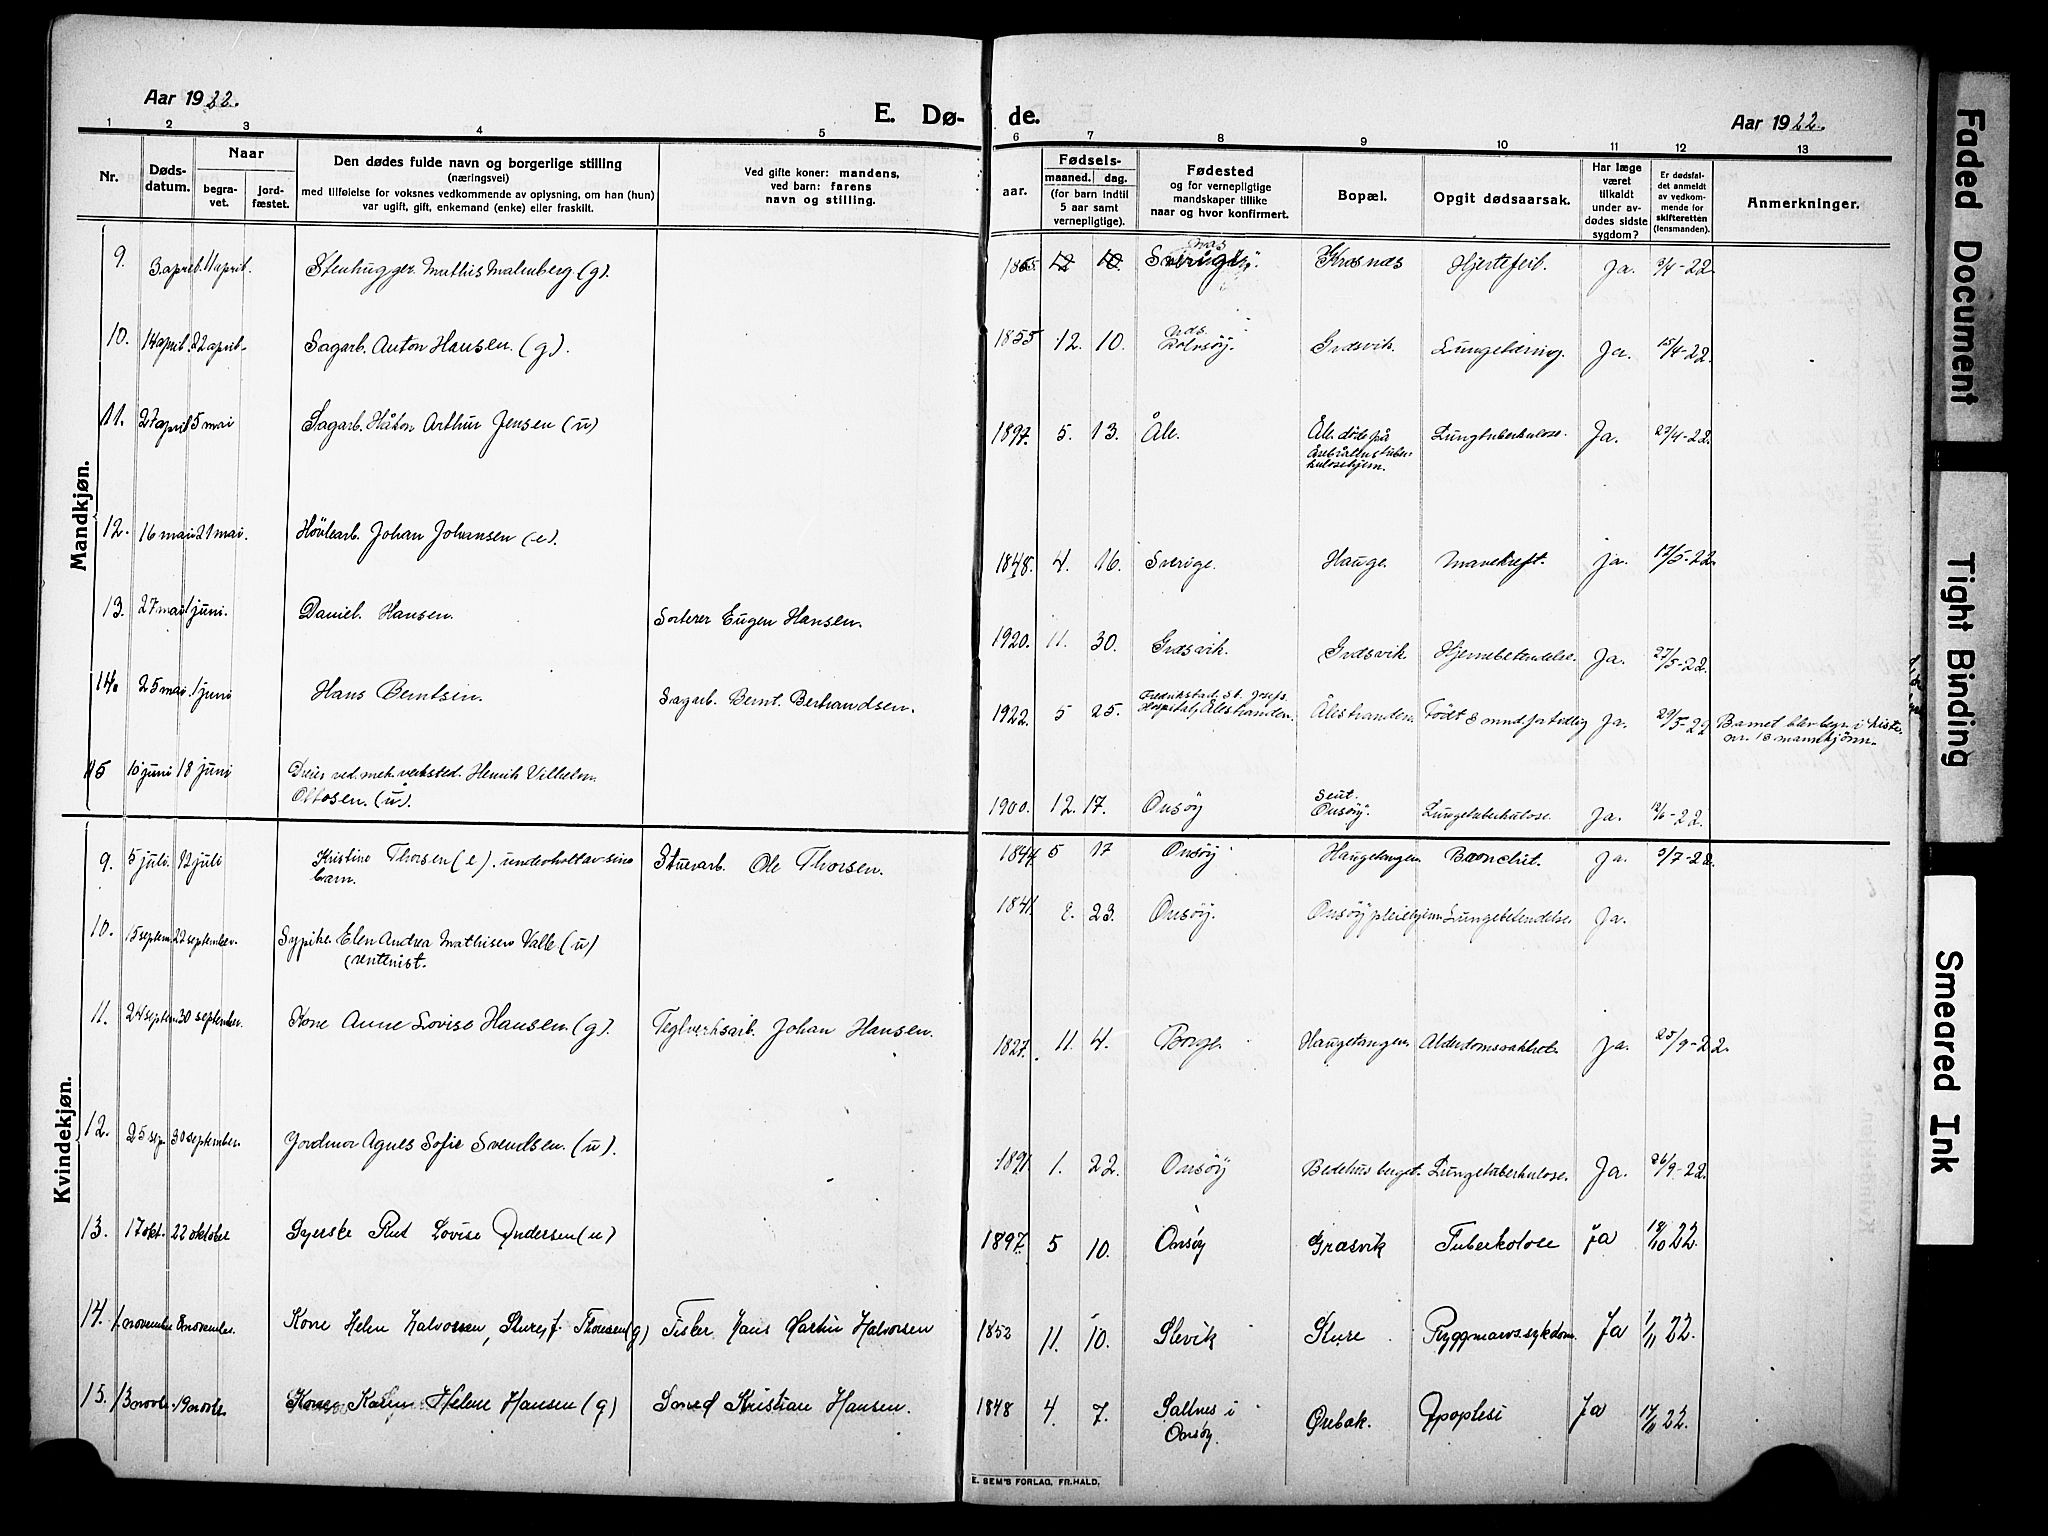 Aar 1922.
E. Dø-
de.
Aar 1922.
1 2 3 4 5 6 7 8 9 10 11 12 13
Nr.
Døds-
datum.
Naar
begra-
vet.
jord-
fæstet.
Den dødes fulde navn og borgerlige stilling
(næringsvei)
med tilføielse for voksnes vedkommende av oplysning, om han (hun)
var ugift, gift, enkemand (enke) eller fraskilt.
Ved gifte koner: mandens,
ved barn: farens
navn og stilling.
Fødsels-
aar.
maaned.
dag.
(for barn indtil
5 aar samt
vernepligtige).
Fødested
og for vernepligtige
mandskaper tillike
naar og hvor konfirmert.
Bopæl.
Opgit dødsaarsak.
Har læge
været
tilkaldt
under av-
dødes sidste
sygdom?
Er dødsfal-
det anmeldt
av vedkom-
mende for
skifteretten
(lensmanden).
Anmerkninger.
Mandkjøn.
9. 3 april. 11 april. Stenhugger Mathis Malmberg (g). 1865. 12 10. Sverige Kræsnæs Hjertefeil. Ja. 3/4-22.
10. 14 april. 22 april. Sagarb. Anton Hansen. (g). 1855 12. 10. Græsvik. Lungetæring. Ja. 15/4-22.
11. 27 april 5 mai Sagarb. Håkon Arthur Jensen (u) 1897. 5. 13. Åle. Åle. døde på
tuber-
kulosehjem. Lungtuberkulose. Ja. 27/4-22.
12. 16 mai 21 mai. Høvlearb. Johan Johansen (e). 1848. 4. 16. Sverige. Hauge. Mavekreft. ja. 17/5-22.
13. 27 mai 1 juni. Daniel. Hansen. Sorterer Eugen Hansen. 1920. 11. 30. Græsvik. Græsvik. Hjernebetendelse. Ja. 27/5-22.
14. 25 mai. 1 juni Hans Berntsen. Sagarb. Bernt. Bertrandsen. 1922. 5 25. Fredrikstad. St. Josefs
Hospital, Ålestranden. Ålestranden. Født for tidlig Ja. 29/5-22 Barnet blev begr. i kiste
nr. 13 mannkjønn.
15 10 juni 18 juni Dreier ved. mek. verksted. Henrik Vilhelm
Ottosen. (u). 1900. 12. 17. Onsøy Seut.
Onsøy. Lungetuberkulose. Ja. 12/6-22.
Kvindekjøn.
9. 5 juli. 12 juli Kristine Thorsen (e). underholdt av sine
barn. Stuerarb. Ole Thorsen. 1844. 5 17 Onsøy Haugetangen Bronchit. Ja. 5/7-22.
10. 15 septem. 22 september. Sypike. Elen Andrea Mathisen Valle (u)
(rentenist. 1841. 2. 23. Onsøy. Onsøy pleiehjem. Lungebetendelse. Ja.
11. 24 septem 30 september. Kone Anne Lovise Hansen. (g). Teglverksarb. Johan Hansen. 1827. 11. 4. Borge. Haugetangen. Alderdomssvakhet. Ja. 25/9-22.
12. 25 sep. 30 september. Jordmor Agnes Sofie Svendsen. (u). 1891. 1. 22. Onsøy Bedehus berget. Lungetuberkulose. Ja. 26/9-22.
13. 17 okt. 22 oktober Syerske Rut Lovise Andersen (u) 1897. 5 10. Onsøy Græsvik Tuberkolose Ja 18/10 22.
14. 1. november 8 november. Kone Helen Halvorsen, Sture, f. Thorsen (g) Fisker Hans Martin Halvorsen 1852 11. 10. Slevik Sture Ryggmarvssykdom. Ja 1/11 22.
15. 13 novbr. 19 novbr Kone Karen Helene Hansen (g) Smed Kristian Hansen. 1848 4. 7. Saltnes i
Onsøy. Ørebæk. Apoplesi Ja 14/11 22.
E. SEM'S FORLAG, FR.HALD.
Faded Document
Tight Binding
Smeared Ink